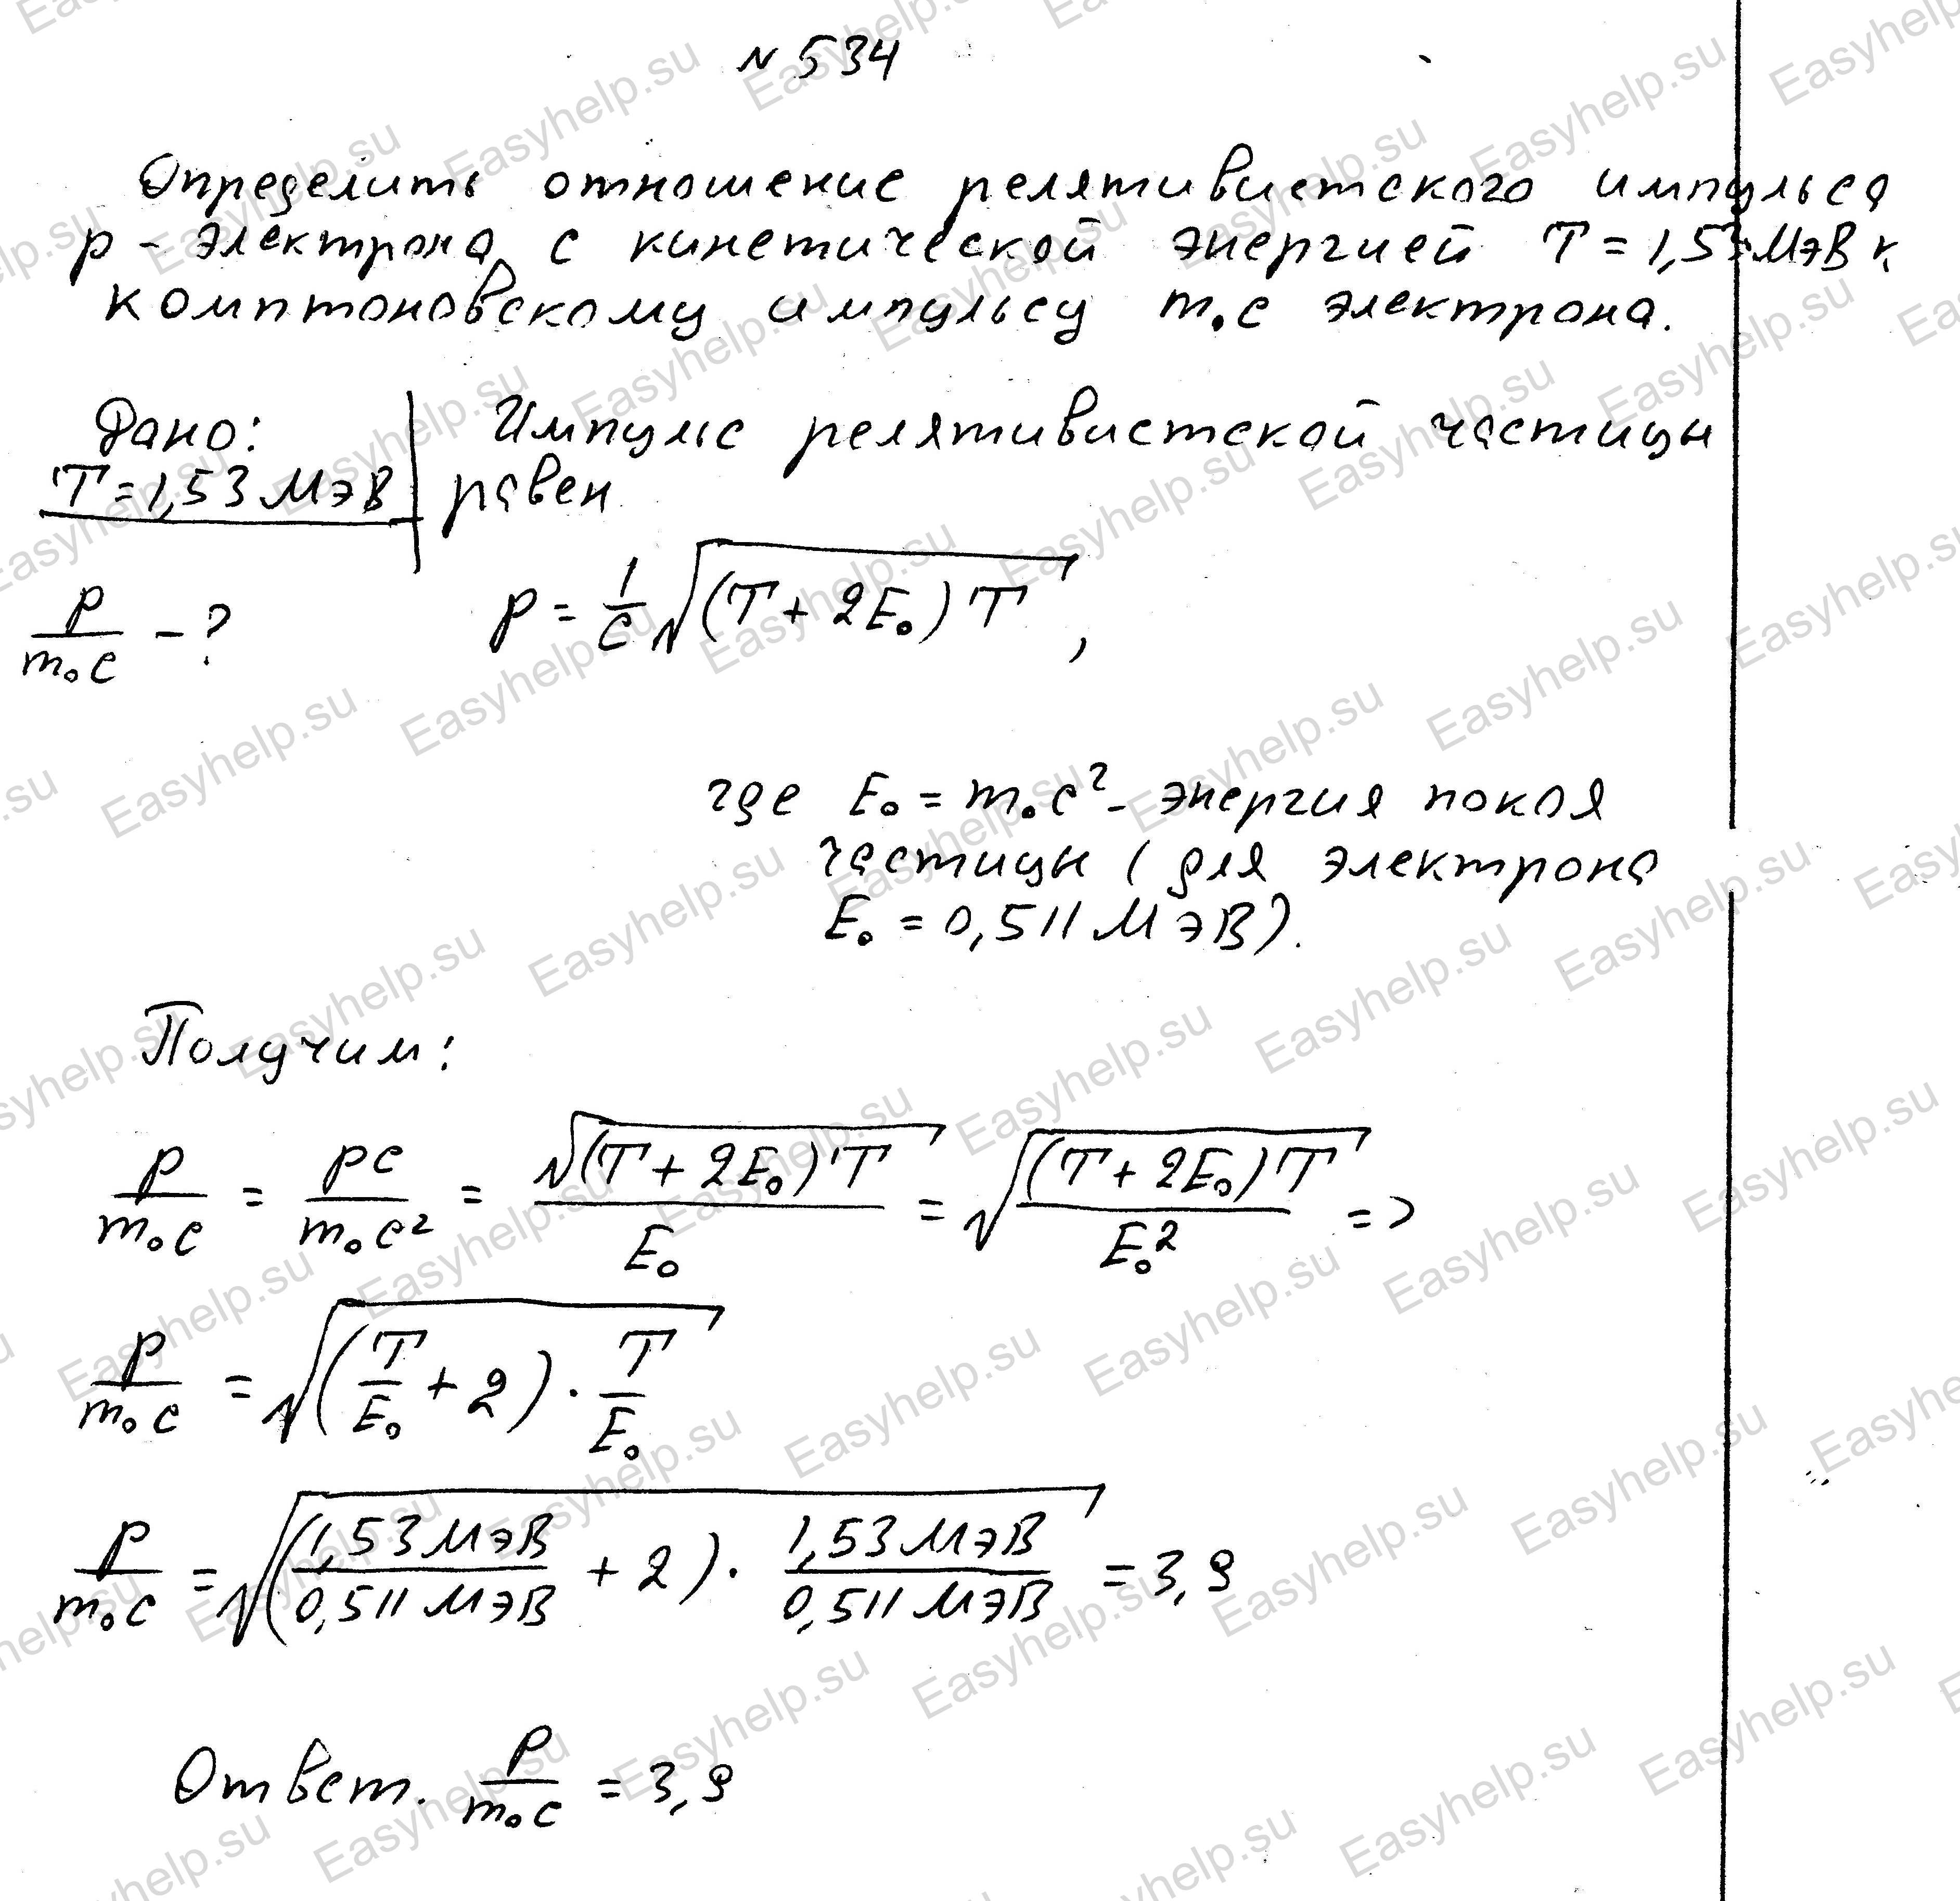 № 534
Определить отношение релятивистского импульса
p - электрона с кинетической энергией T = 1,53 МэВ к
комптоновскому импульсу m₀c электрона.
Дано:
T = 1,53 МэВ
p/(m₀c) - ?
Импульс релятивистской частицы
равен
p = 1/c √((T + 2E₀) T),
где E₀ = m₀c² - энергия покоя
частицы (для электрона
E₀ = 0,511 МэВ).
Получим:
p/(m₀c) = pc/(m₀c²) = √((T + 2E₀) T)/E₀ = √((T + 2E₀) T/E₀²) =>
p/(m₀c) = √((T/E₀ + 2) · T/E₀)
p/(m₀c) = √((1,53 МэВ/0,511 МэВ + 2) · 1,53 МэВ/0,511 МэВ) = 3,9
Ответ. p/(m₀c) = 3,9
Easyhelp.su